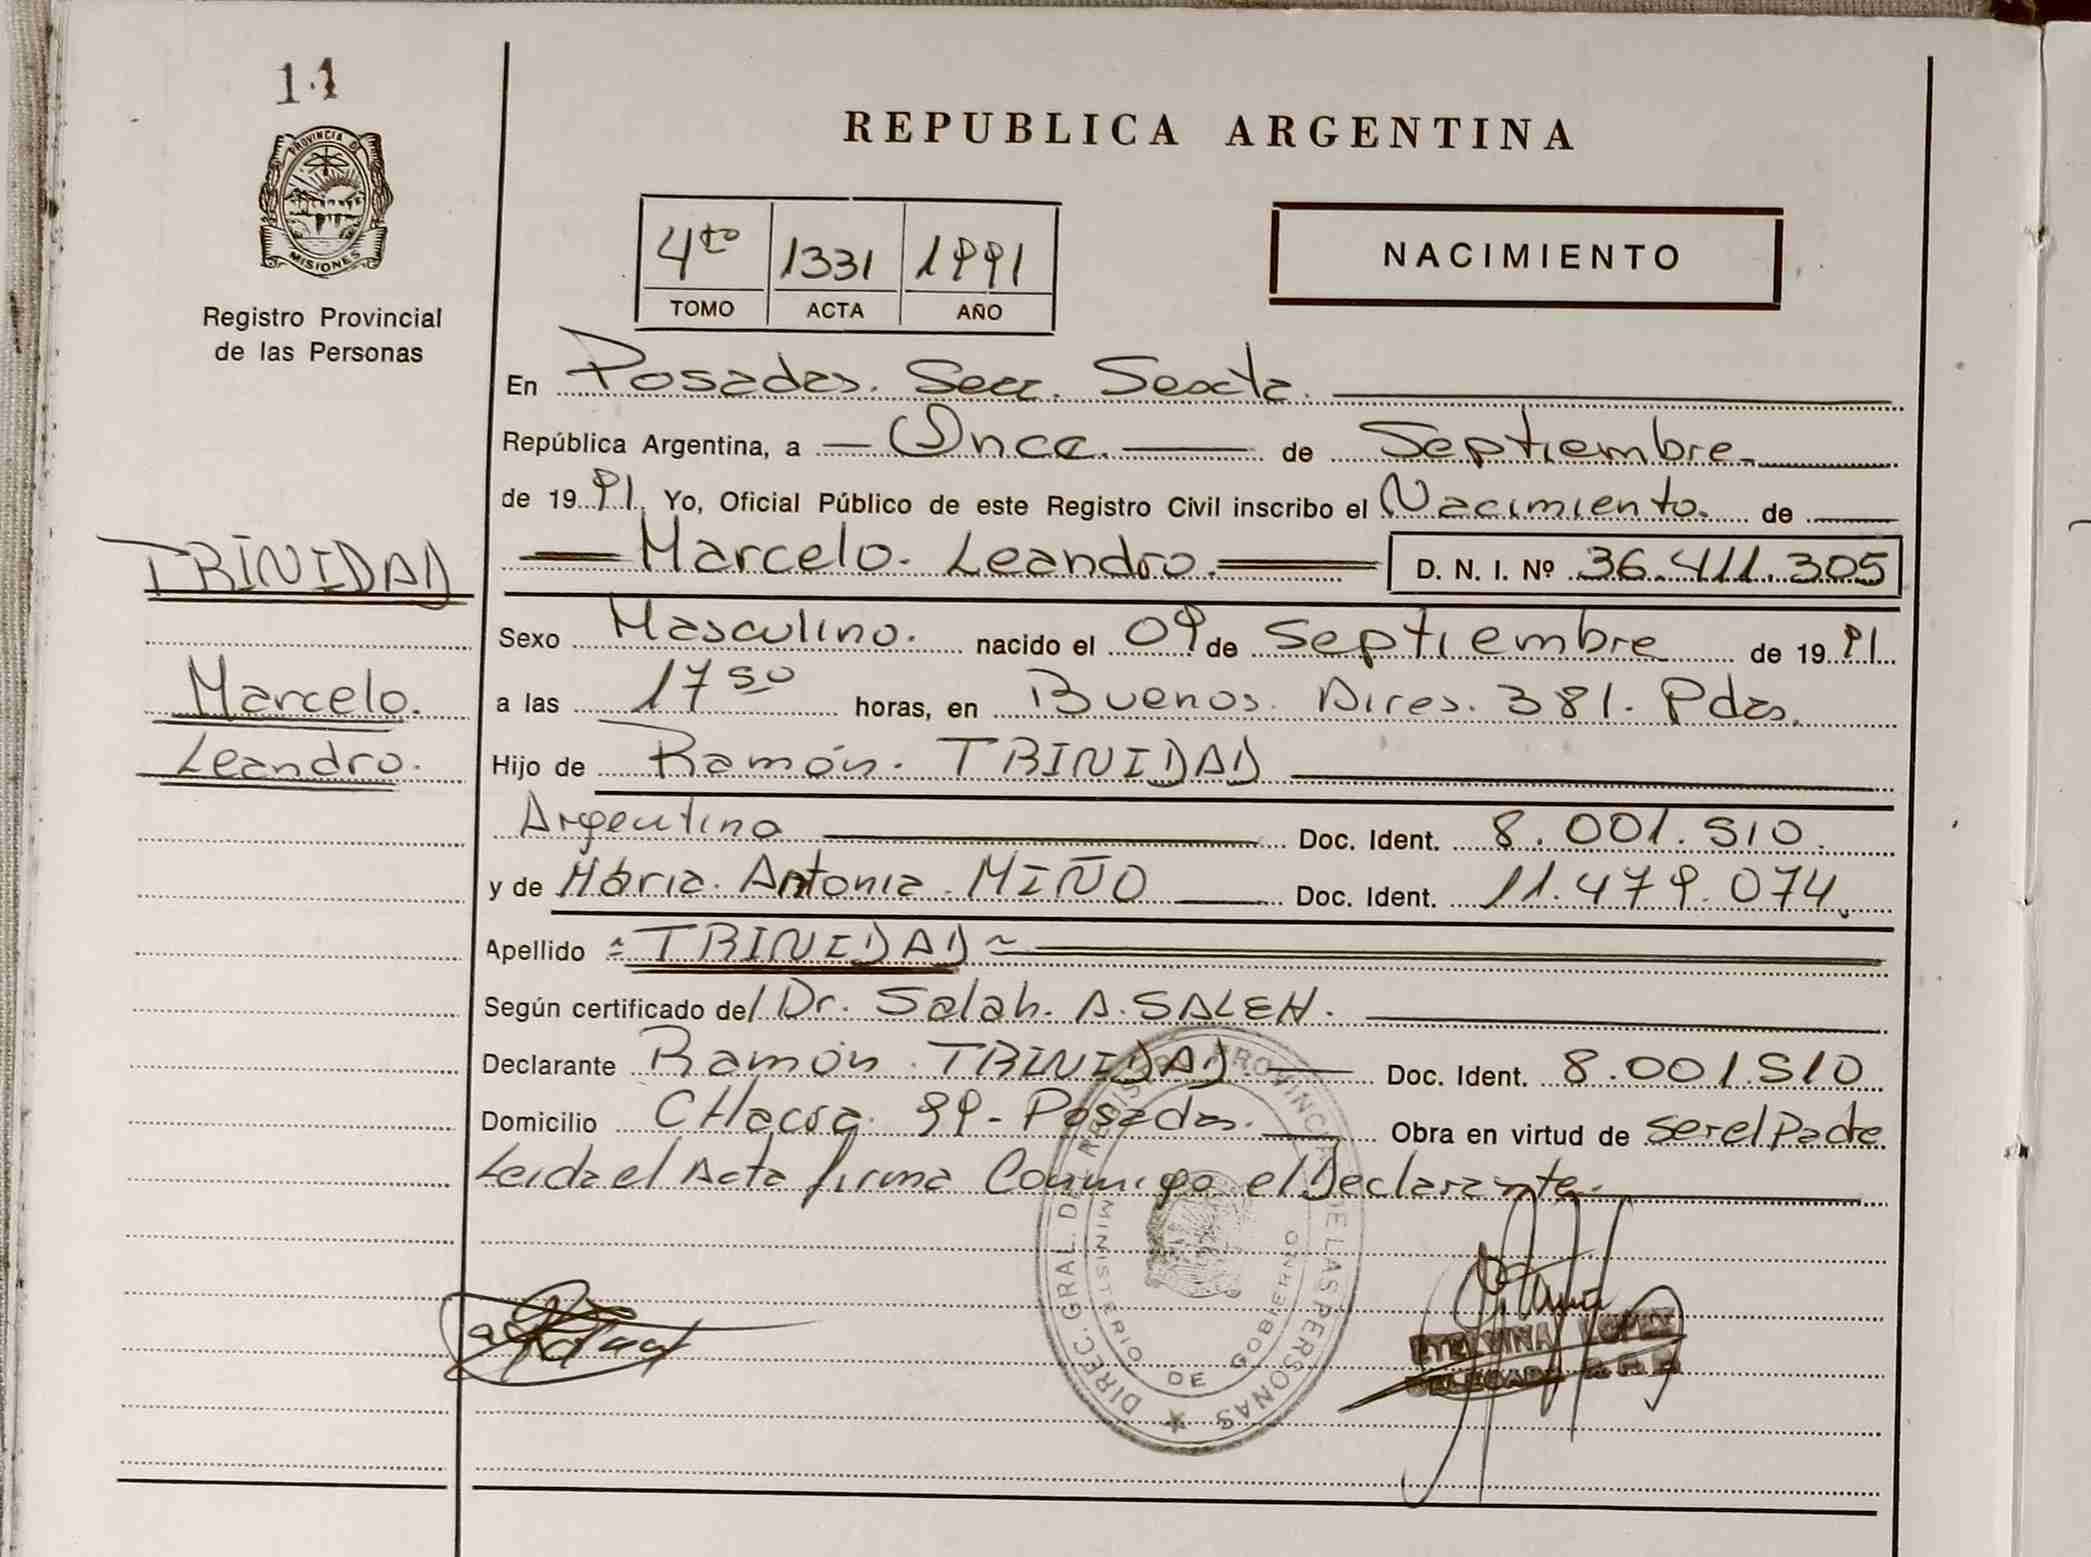 11
PROVINCIA DE
MISIONES
Registro Provincial
de las Personas
TRINIDAD
Marcelo.
Leandro.
REPUBLICA ARGENTINA
4to 1331 1991
TOMO ACTA AÑO
NACIMIENTO
En Posadas. Secc. Sexta.
República Argentina, a Once. de Septiembre.
de 1991. Yo, Oficial Público de este Registro Civil inscribo el Nacimiento. de
Marcelo. Leandro. D. N. I. Nº 36.411.305
Sexo Masculino. nacido el 09 de Septiembre de 1991.
a las 17 50 horas, en Buenos. Aires. 381. Pdas.
Hijo de Ramón. TRINIDAD
Argentino Doc. Ident. 8.001.510.
y de María. Antonia. MIÑO Doc. Ident. 11.479.074.
Apellido TRINIDAD
Según certificado del Dr. Salah. A. SALEH.
Declarante Ramón. TRINIDAD Doc. Ident. 8.001.510
Domicilio CHacra. 99 - Posadas. Obra en virtud de ser el Padre
Leida el Acta firma Conmigo el Declarante.
DIREC. GRAL. DE REGISTRO PROVINCIAL DE LAS PERSONAS
MINISTERIO DE GOBIERNO
ETELVINA LOPEZ